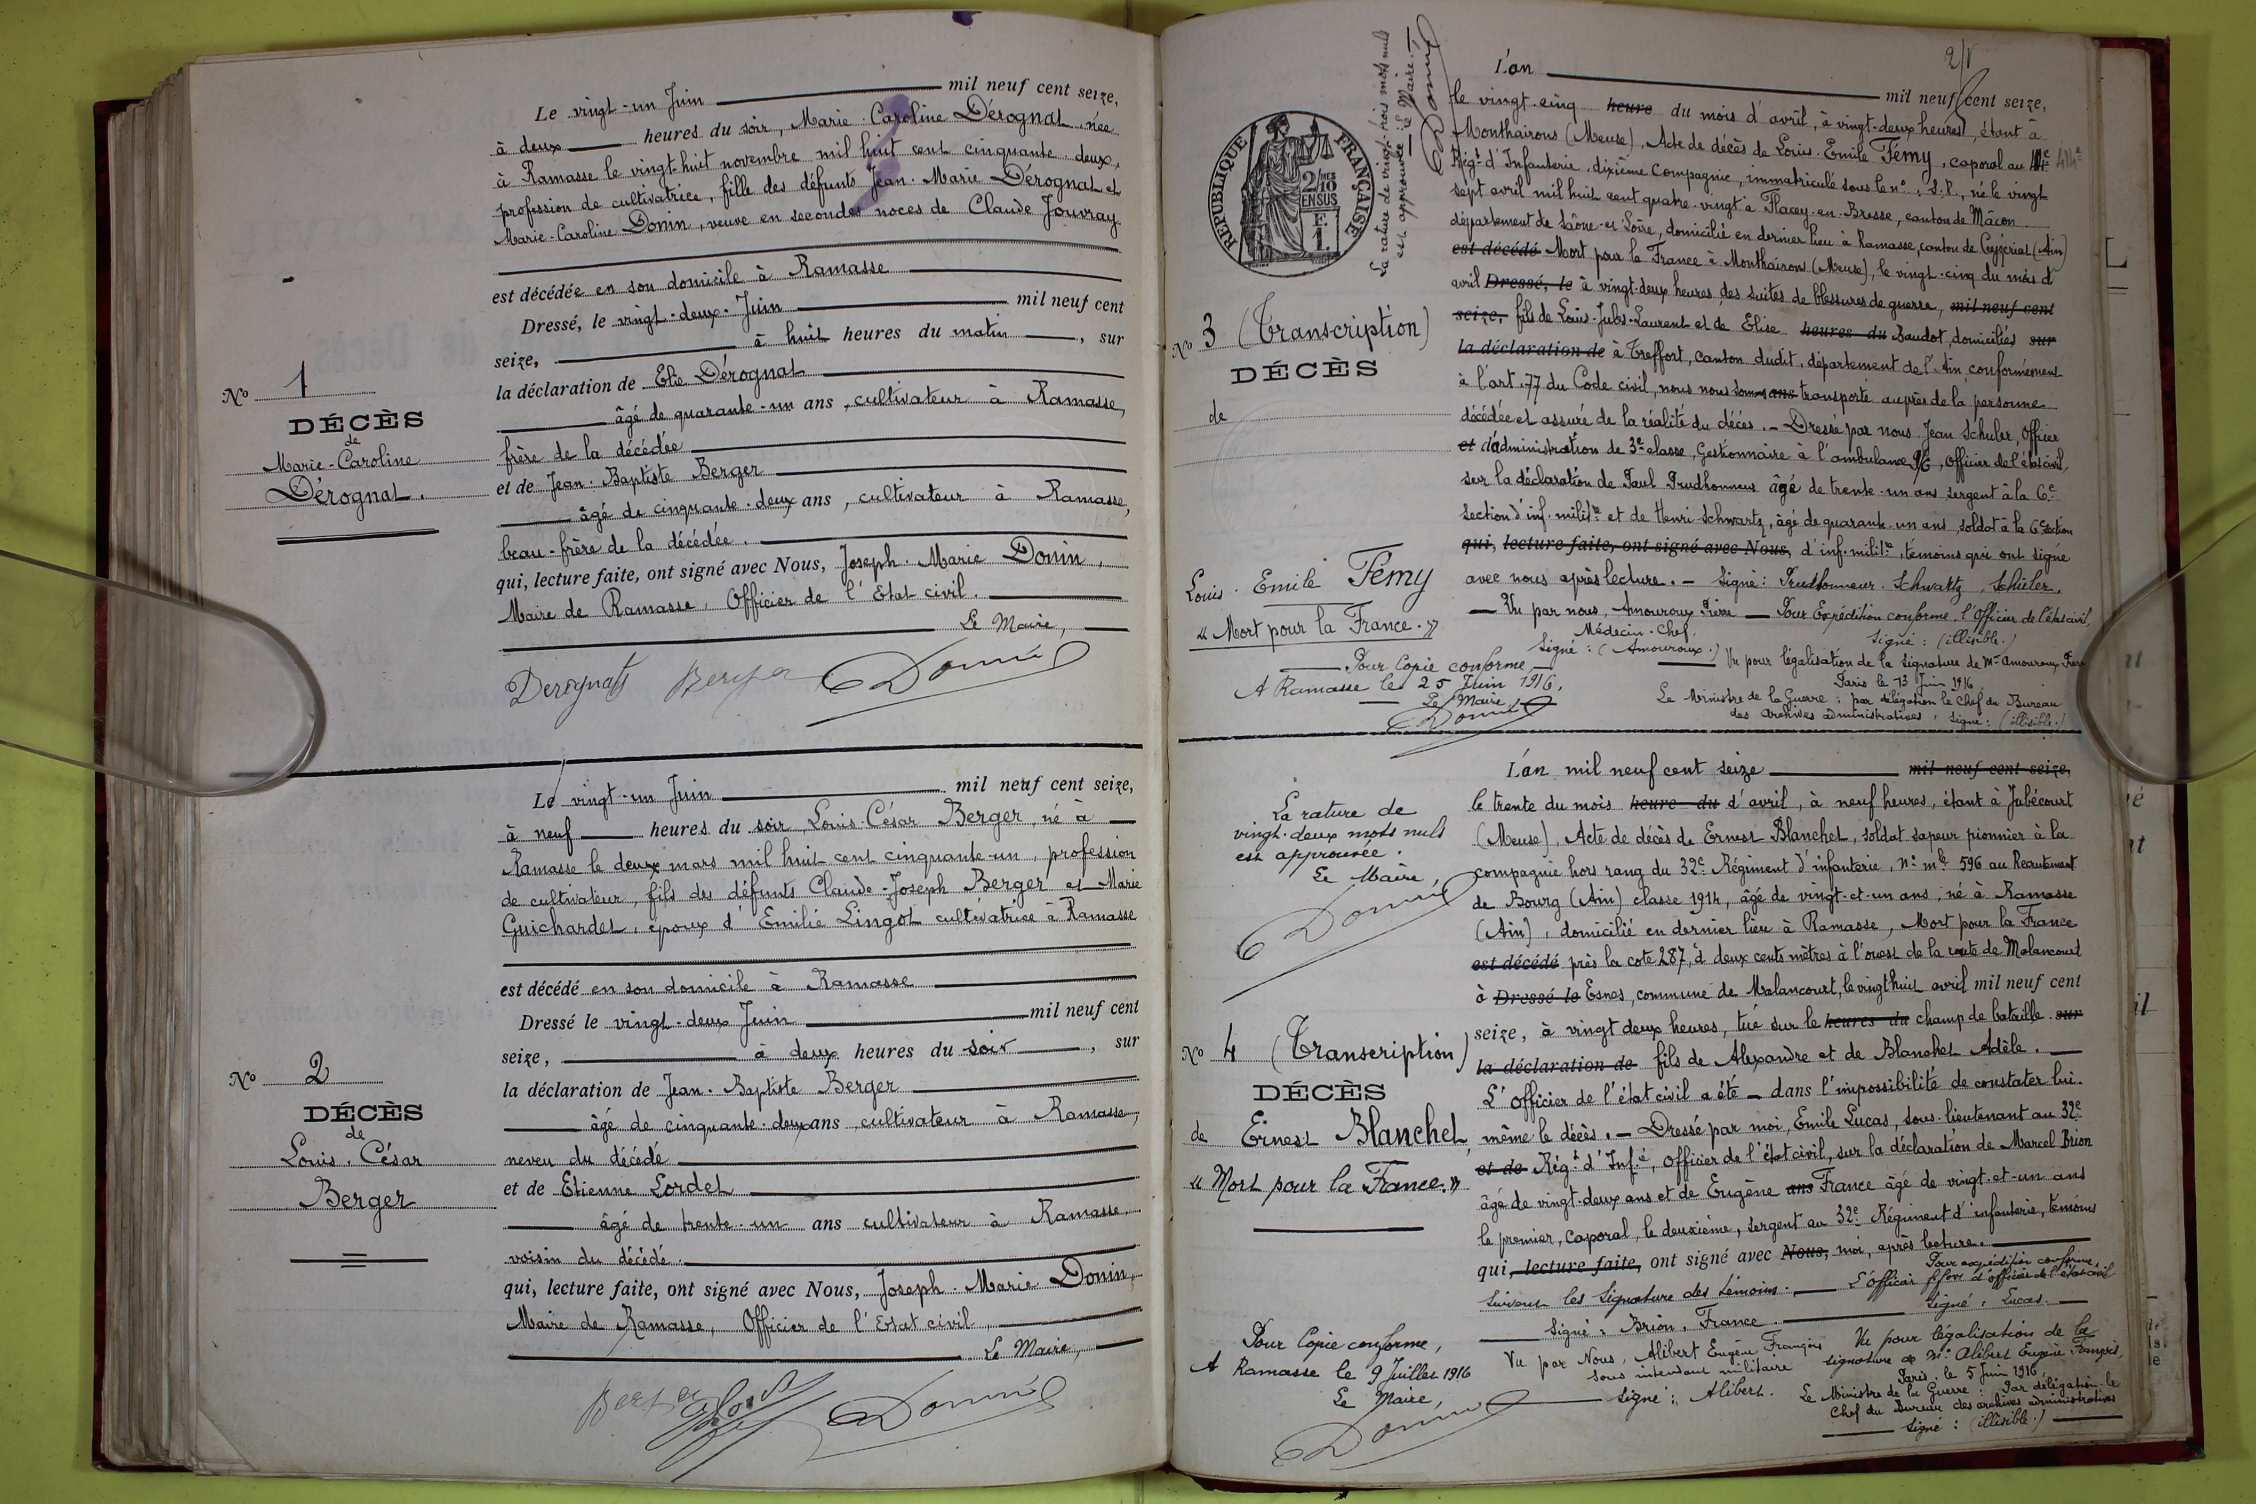 Le vingt-un Juin mil neuf cent seize,
à deux heures du soir, Marie-Caroline Dérognat, née
à Ramasse le vingt-huit novembre mil huit cent cinquante-deux,
profession de cultivatrice, fille des défunts Jean-Marie Dérognat et
Marie-Caroline Donin, veuve en secondes noces de Claude Jouvray
est décédée en son domicile à Ramasse
Dressé, le vingt-deux Juin mil neuf cent
seize, à huit heures du matin, sur
la déclaration de Elie Dérognat
âgé de quarante-un ans, cultivateur à Ramasse,
frère de la décédée
et de Jean-Baptiste Berger
âgé de cinquante-deux ans, cultivateur à Ramasse,
beau-frère de la décédée.
qui, lecture faite, ont signé avec Nous, Joseph-Marie Donin,
Maire de Ramasse, Officier de l'Etat civil.
Le Maire,
Derognat Berger Donin
No 1
DÉCÈS
de
Marie-Caroline
Dérognat.
Le vingt-un Juin mil neuf cent seize,
à neuf heures du soir, Louis-César Berger, né à
Ramasse le deux mars mil huit cent cinquante-un, profession
de cultivateur, fils des défunts Claude-Joseph Berger et Marie
Guichardet, époux d'Emilie Lingot cultivatrice à Ramasse
est décédé en son domicile à Ramasse
Dressé le vingt-deux Juin mil neuf cent
seize, à deux heures du soir, sur
la déclaration de Jean-Baptiste Berger
âgé de cinquante-deux ans, cultivateur à Ramasse,
neveu du décédé
et de Etienne Lordet
âgé de trente-un ans cultivateur à Ramasse
voisin du décédé.
qui, lecture faite, ont signé avec Nous, Joseph-Marie Donin,
Maire de Ramasse, Officier de l'Etat civil,
Le Maire,
Berger Donin
No 2
DÉCÈS
de
Louis-César
Berger
2/V
RÉPUBLIQUE FRANÇAISE
2/10
EN SUS
La rature de vingt-trois mots nuls
est approuvée. Le Maire,
Donin
L'an mil neuf cent seize,
le vingt-cinq heure du mois d'avril, à vingt-deux heures, étant à
Monthairons (Meuse), Acte de décès de Louis-Emile Fémy, caporal au 414e
Régt d'Infanterie, dixième Compagnie, immatriculé sous le no, S.P., né le vingt
sept avril mil huit cent quatre-vingt à Flacey-en-Bresse, canton de Mâcon
département de Saône-et-Loire, domicilié en dernier lieu à Ramasse, canton de Ceyzeriat (Ain)
est décédé Mort pour la France à Monthairons (Meuse), le vingt-cinq du mois d'
avril Dressé, le à vingt-deux heures, des suites de blessures de guerre, mil neuf cent
seize, fils de Louis-Jules-Laurent et de Elise heures du Baudot, domiciliés sur
la déclaration de à Treffort, canton dudit, département de l'Ain, conformément
à l'art. 77 du Code civil, nous nous sommes ans transporté auprès de la personne
décédée et assuré de la réalité du décès. - Dressé par nous Jean Schuler, Officier
et d'administration de 3e classe, Gestionnaire à l'ambulance 9/6, Officier de l'état civil,
sur la déclaration de Paul Prudhonneur âgé de trente-un ans sergent à la 6e
section d'inf. milit.re et de Henri Schwartz, âgé de quarante-un ans, soldat à la 6e section
qui, lecture faite, ont signé avec Nous, d'inf. milit.re, témoins qui ont signé
avec nous après lecture. - Signé : Prudhonneur. Schwartz, Schuler.
Vu par nous, Amouroux Pierre - Pour Expédition conforme, l'Officier de l'état civil,
Médecin-Chef. Signé : (illisible.)
Signé : (Amouroux.) Vu pour légalisation de la signature de Mr Amouroux Pierre
Paris le 13 Juin 1916
Le Ministre de la Guerre : par délégation le Chef du Bureau
des archives administratives, Signé : (illisible.)
No 3 (Transcription)
DÉCÈS
de
Louis-Emile Fémy
« Mort pour la France. »
Pour Copie conforme,
A Ramasse le 25 Juin 1916,
Le Maire,
Donin
L'an mil neuf cent seize mil neuf cent seize,
le trente du mois heure du d'avril, à neuf heures, étant à Jubécourt
(Meuse), Acte de décès de Ernest Blanchet, soldat sapeur pionnier à la
compagnie hors rang du 32e Régiment d'infanterie, No mle 596 au Recrutement
de Bourg (Ain) classe 1914, âgé de vingt-et-un ans, né à Ramasse
(Ain), domicilié en dernier lieu à Ramasse, Mort pour la France
est décédé près la cote 287, à deux cents mètres à l'ouest de la route de Malancourt
à Dressé le Esnes, commune de Malancourt, le vingt huit avril mil neuf cent
seize, à vingt deux heures, tué sur le heures du champ de bataille. sur
la déclaration de fils de Alexandre et de Blanchet Adèle.
L'officier de l'état civil a été - dans l'impossibilité de constater lui-
même le décès. - Dressé par moi, Emile Lucas, sous-lieutenant au 32e
et de Régt d'Inf.ie, Officier de l'état civil, sur la déclaration de Marcel Brion
âgé de vingt-deux ans et de Eugène ans France âgé de vingt-et-un ans
le premier, caporal, le deuxième, sergent au 32e Régiment d'infanterie, témoins
qui, lecture faite, ont signé avec Nous, moi, après lecture.
Suivent les signature des témoins. Pour expédition conforme,
L'officier ff. d'officier de l'état civil
Signé : Brion, France. Signé : Lucas.
Vu par Nous, Alibert Eugène François
sous intendant militaire
Signé : Alibert.
Vu pour légalisation de la
signature de Mr Alibert Eugène François,
Paris, le 5 Juin 1916,
Le Ministre de la Guerre : Par délégation le
Chef du Bureau des archives administratives
Signé : (illisible.)
La rature de
vingt-deux mots nuls
est approuvée.
Le Maire,
Donin
No 4 (Transcription)
DÉCÈS
de Ernest Blanchet
« Mort pour la France. »
Pour Copie conforme,
A Ramasse le 9 Juillet 1916
Le Maire,
Donin